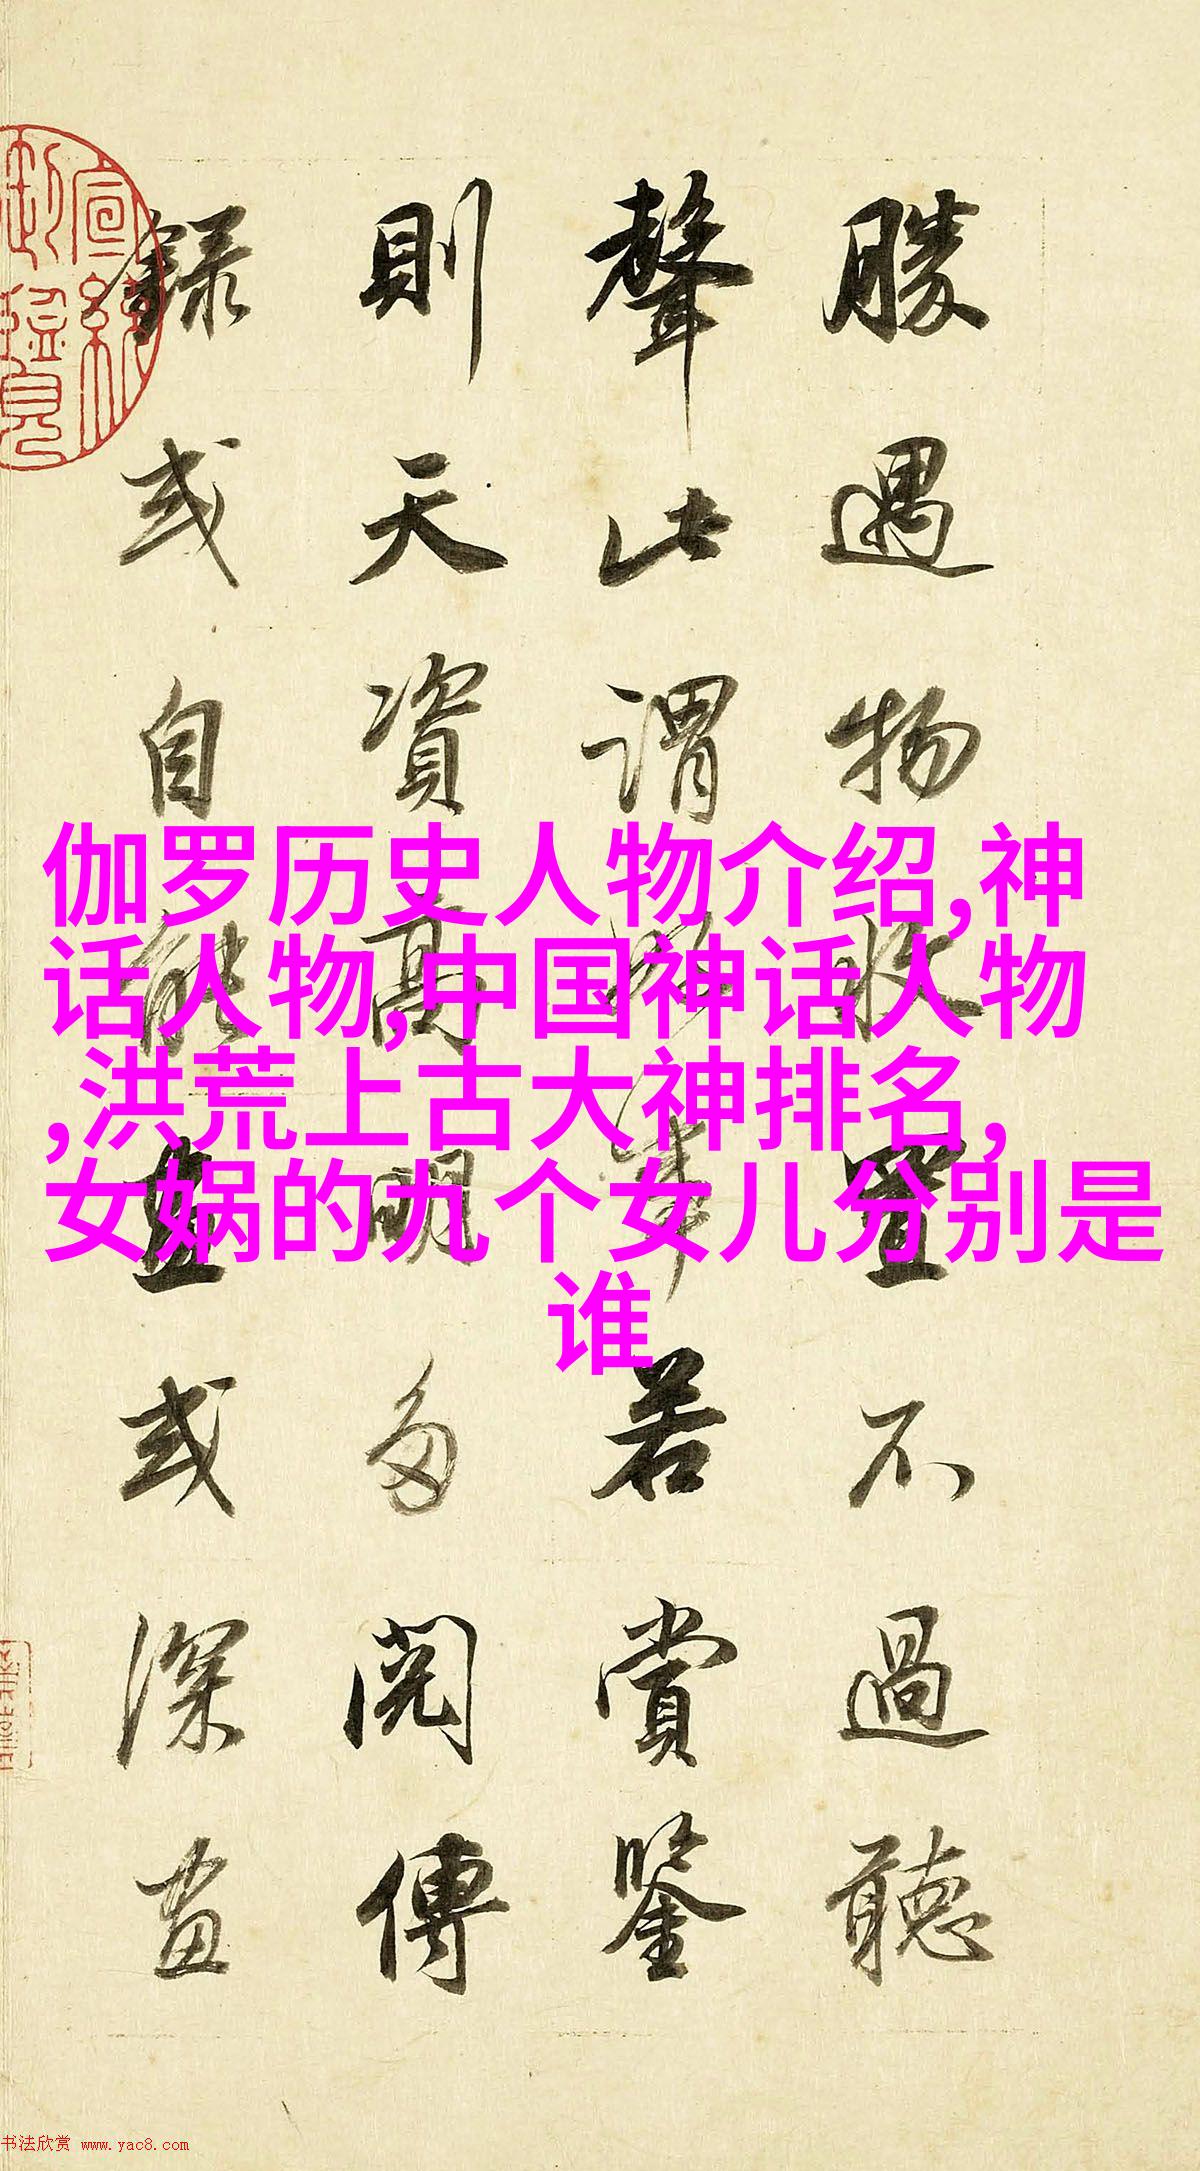 勝遇物收置不過聽
聲此謂好事若賞鑒
則天資高明多閱傳
錄或自能畫或深畫
伽罗历史人物介绍,神
话人物,中国神话人物
,洪荒上古大神排名,
女娲的九个女儿分别是
谁
书法欣赏 www.yac8.com